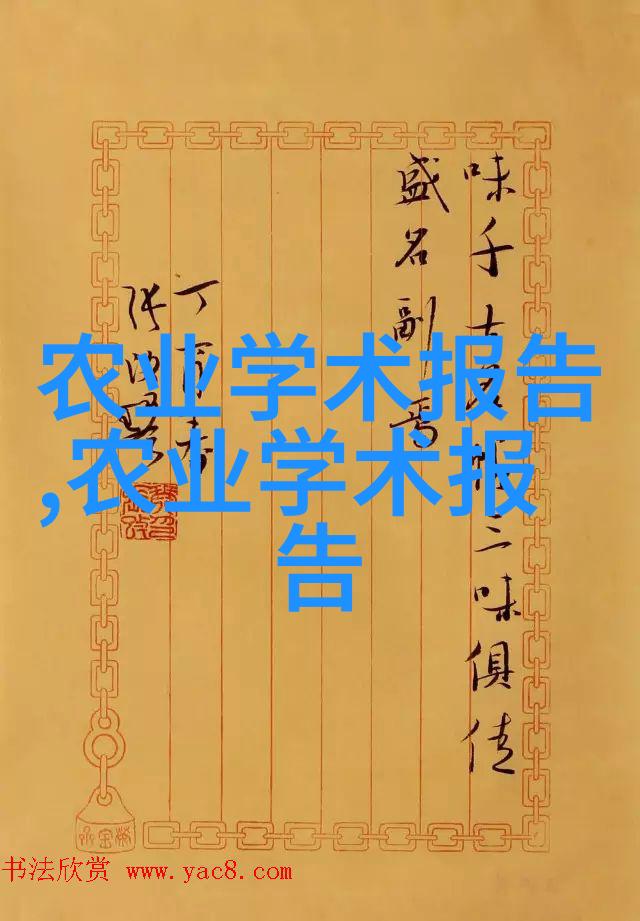 味千古三味俱佳
盛名副焉
丁酉春
农业学术报告
,农业学术报
告
书法欣赏 www.yac8.com